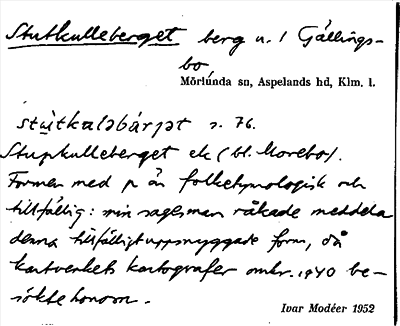 Stutkulleberget berg n. l Gällings-
bo
Mörlunda sn, Aspelands hd, Klm. l.
stùtkaləbárjət s. 76.
Stupkulleberget ek (bl. Morebo).
Formen med p är folketymologisk och
tillfällig: min sagesman råkade meddela
denna tillfälligt uppsnyggade form, då
kartverkets kartografer omkr. 1940 be-
sökte honom.
Ivar Modéer 1952